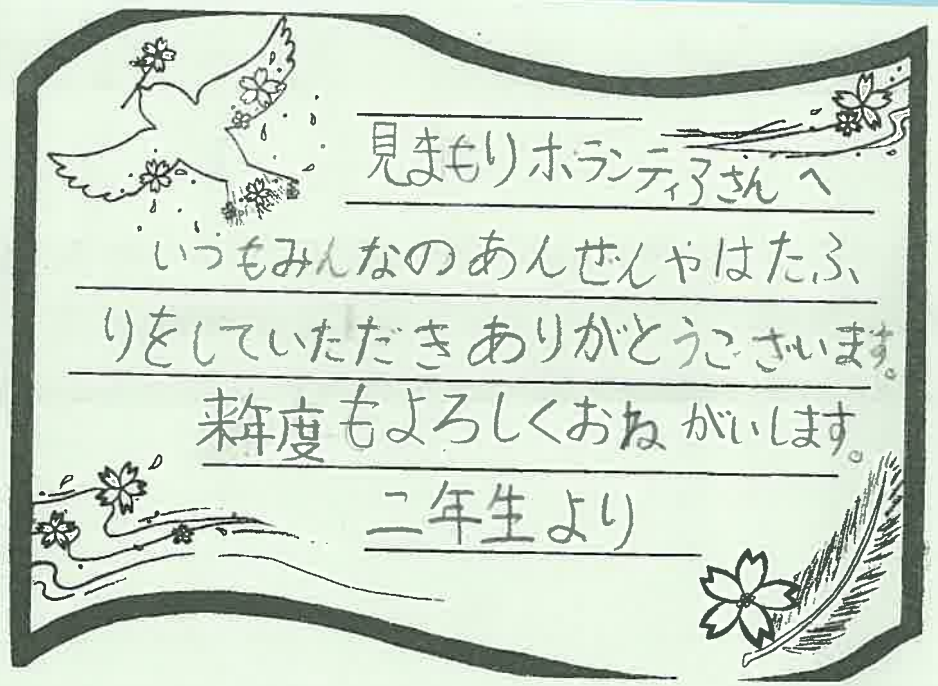 見まもりボランティアさんへ
いつもみんなのあんぜんやはたふ
りをしていただきありがとうございます。
来年度もよろしくおねがいします。
二年生より